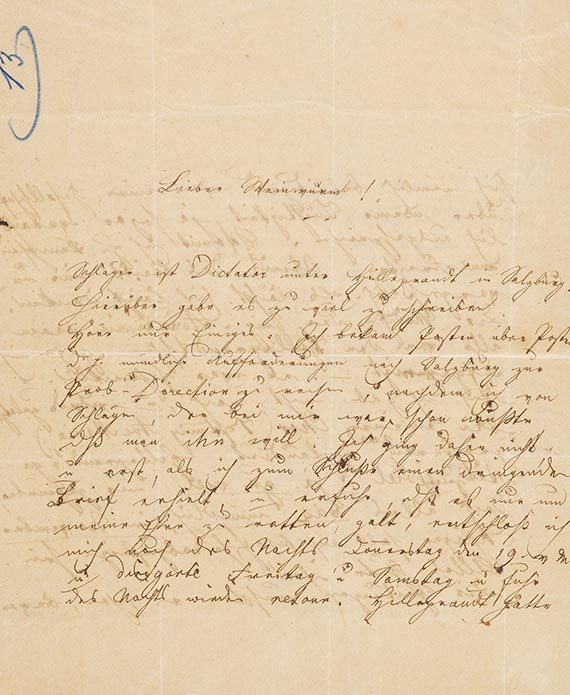 13.
Lieber Weinwurm!
Schläger ist Dictator unter Hilleprandt in Salzburg.
Hierüber gäbe es zu viel zu schreiben.
Höre nur Einiges: Ich bekam Posten über Posten
dch mündliche Aufforderungen nach Salzburg zur
Prob-Direction zu reisen, nachdem ich von
Schläger, der bei mir war, schon wußte
daß man ihn will. Ich ging daher nicht
u erst, als ich zum Schluße einen dringenden
Brief erhielt, u erfuhr, daß es nur um
meine Ehre zu retten, galt, entschloß ich
mich noch des Nachts Donnerstag den 19. v M
u dirigirte Freitag u Samstag u fuhr
des Nachts wieder retour. Hilleprandt hatte